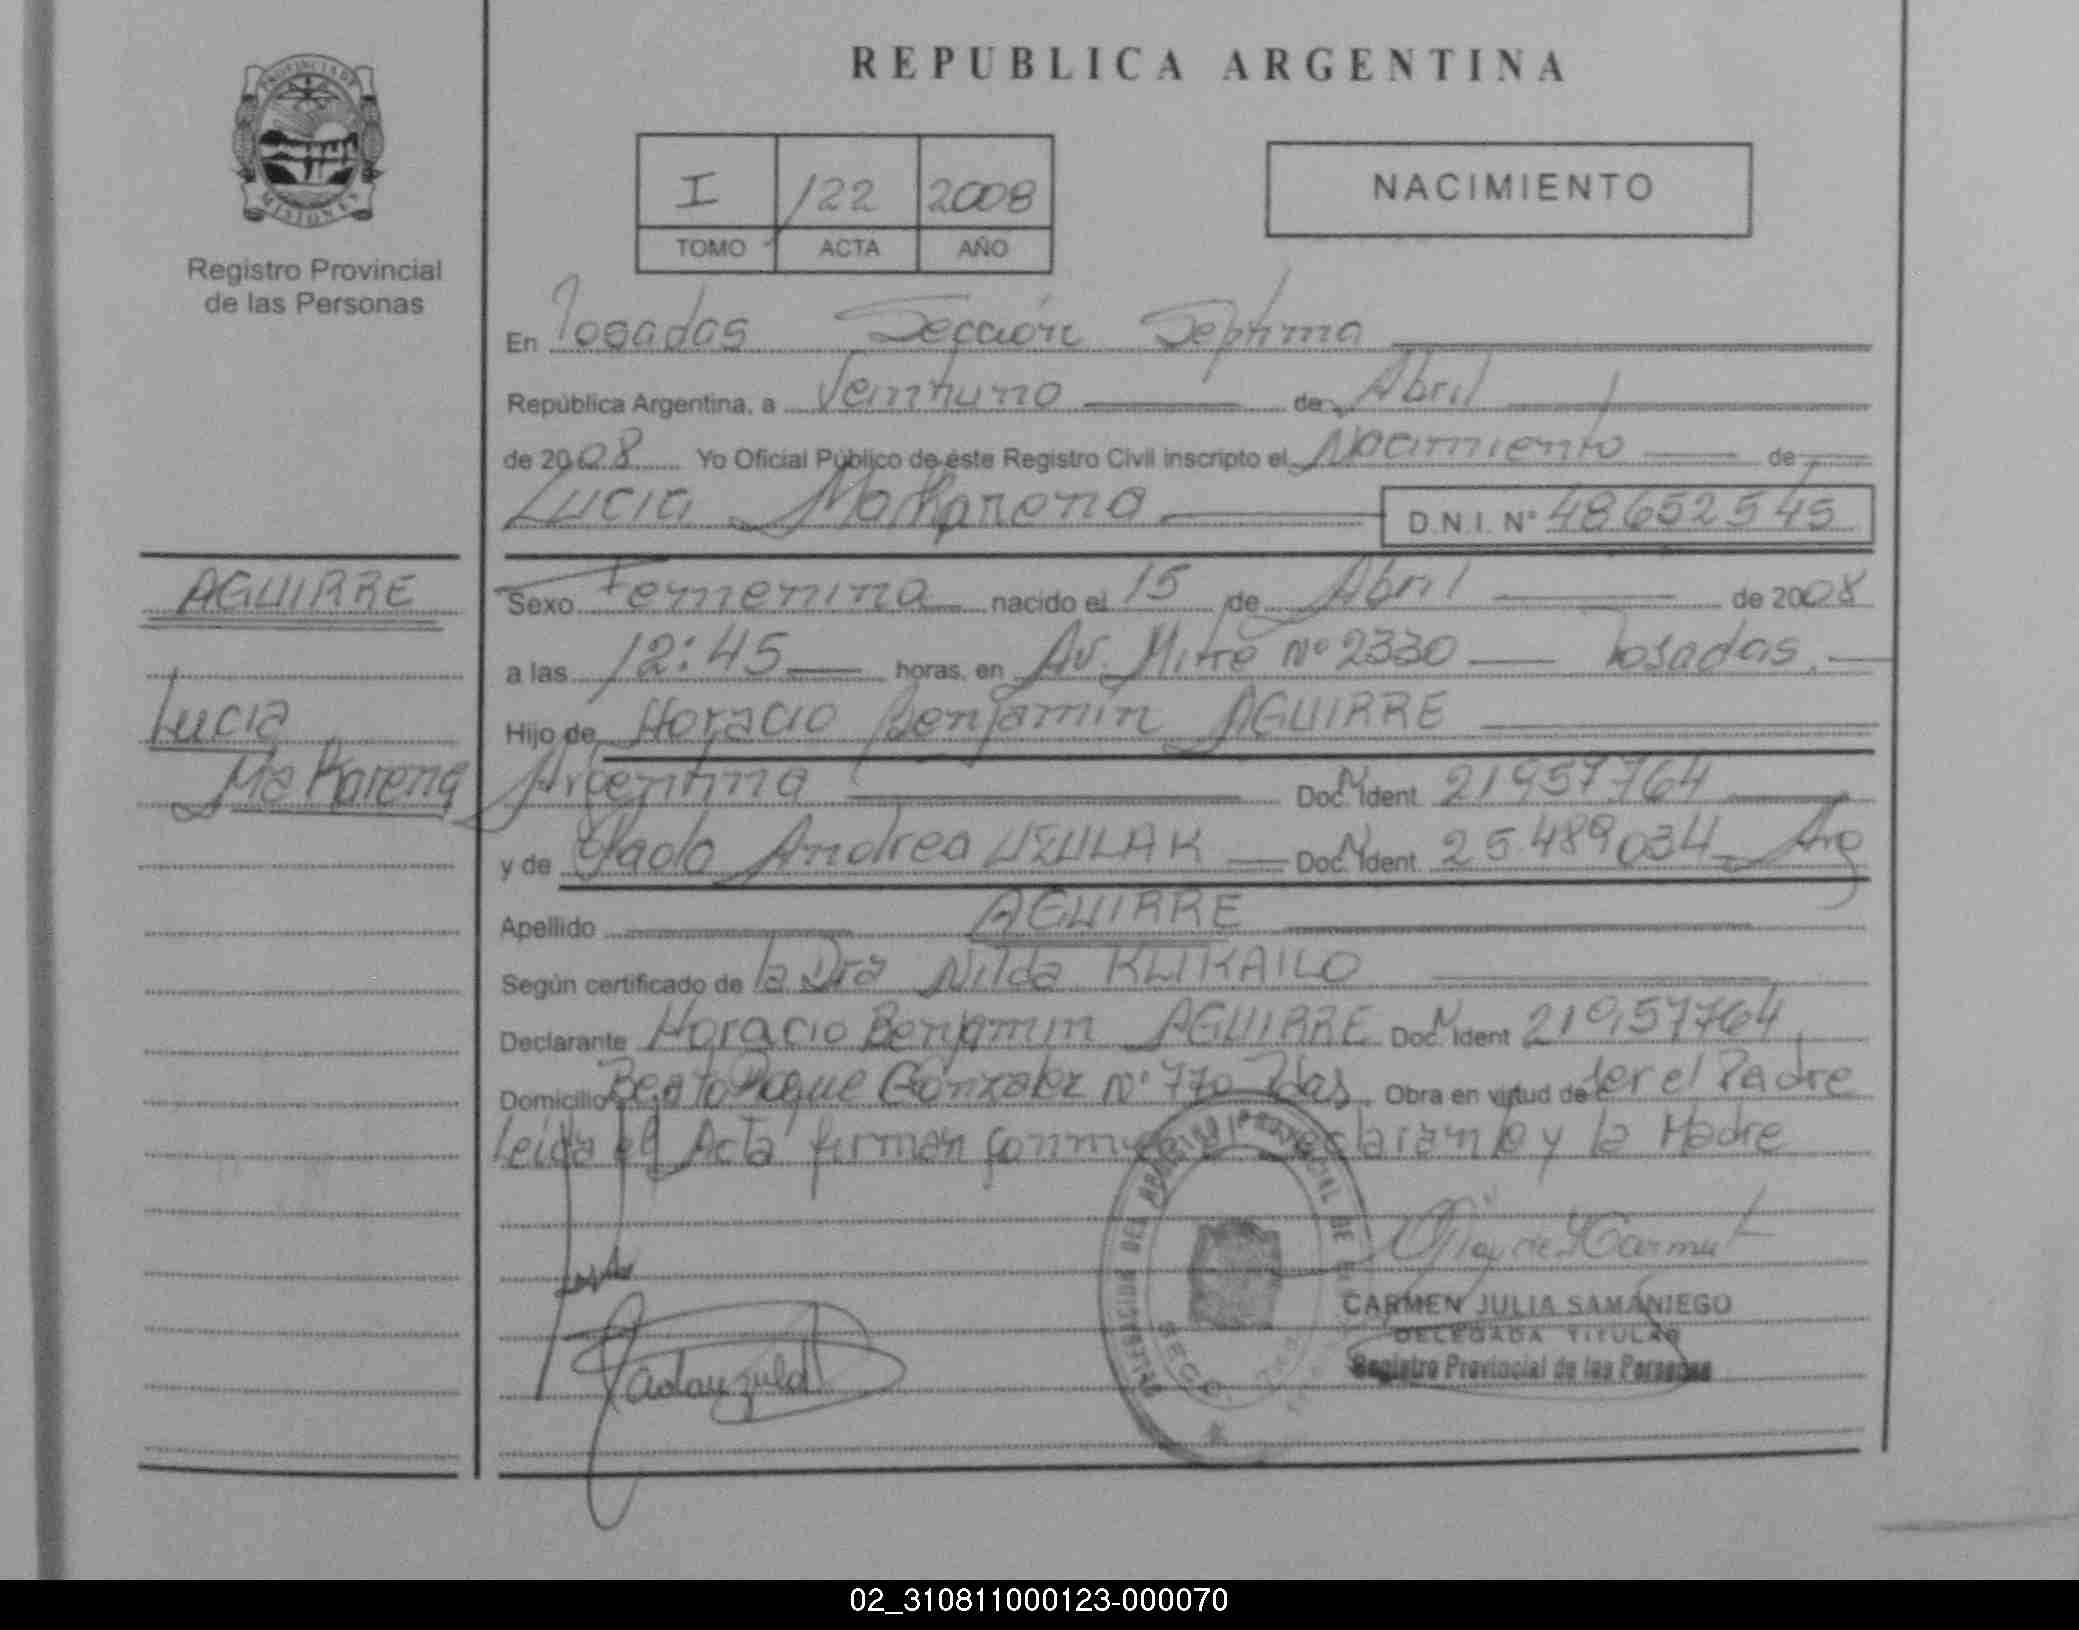 REPUBLICA ARGENTINA
PROVINCIA DE
MISIONES
Registro Provincial
de las Personas
I 122 2008
TOMO ACTA AÑO
NACIMIENTO
En Posadas Sección Septima
República Argentina, a Veintiuno de Abril
de 2008 Yo Oficial Público de éste Registro Civil inscripto el Nacimiento de
Lucia Makarena D.N.I. N° 48652545
AGUIRRE
Lucia
Makarena
Sexo Femenina nacido el 15 de Abril de 2008
a las 12:45 horas, en Av. Mitre N° 2330 Posadas.
Hijo de Horacio Benjamin AGUIRRE
Argentina Doc. Ident. 21957764
y de Andrea UZULAK Doc. Ident. 25489034 Arg
Apellido AGUIRRE
Según certificado de la Dra Nilda KLIKAILO
Declarante Horacio Benjamin AGUIRRE Doc. Ident 21957764
Domicilio Beato Roque Gonzalez N° 770 Pdas Obra en virtud de ser el Padre
Leida el Acta firman conmigo declarante y la Madre
CARMEN JULIA SAMANIEGO
DELEGADA TITULAR
Registro Provincial de las Personas
02_310811000123-000070